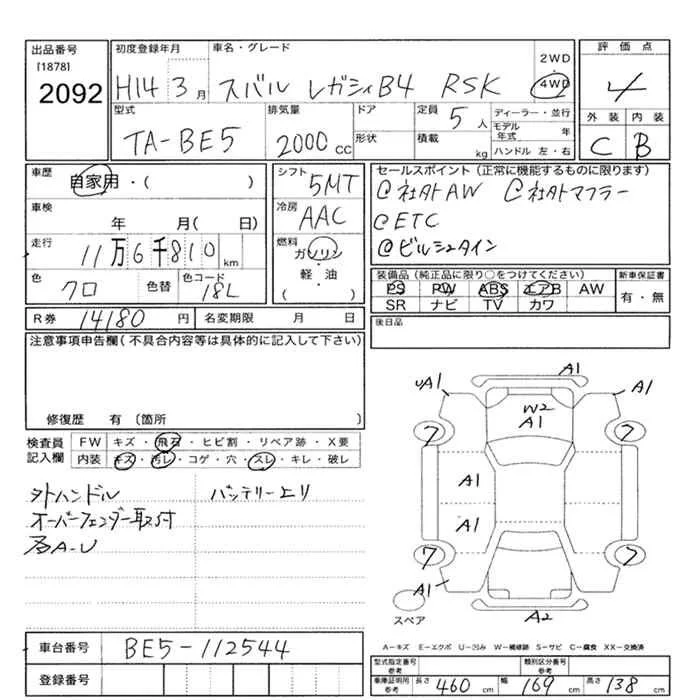 出品番号
[1878]
2092
初度登録年月
H14 3月
車名・グレード
スバル レガシィB4 RSK
2WD
・
4WD
評価点
4
外装 内装
C B
型式
TA-BE5
排気量
2000 CC
ドア
形状
定員 5人
積載 kg
ディーラー・並行
モデル年式 年
ハンドル 左・右
車歴
自家用・( )
車検
年 月( 日)
走行
11万6千810 km
色
クロ
色替
色コード
18L
シフト
5MT
冷房
AAC
燃料
ガソリン
・
軽・油
( )
セールスポイント(正常に機能するものに限ります)
@社外AW @社外マフラー
@ETC
@ビルシュタイン
装備品(純正品に限り○をつけてください)
PS PW ABS エアB AW
SR ナビ TV カワ
新車保証書
有・無
R券 14180円
名変期限 月 日
後日品
注意事項申告欄(不具合内容等は具体的に記入して下さい)
修復歴 有(箇所 )
検査員
記入欄
FW キズ・飛石・ヒビ割・リペア跡・X要
内装 キズ・汚レ・コゲ・穴・スレ・キレ・破レ
外ハンドル
オーバーフェンダー取付
各A-U
バッテリー上リ
A1
UA1
A1
W2
A1
7
7
A1
A1
7
7
A1
A2
スペア
A-キズ E-エクボ U-凹み W-補修跡 S-サビ C-腐食 XX-交換済
車台番号
BE5-112544
登録番号
型式指定番号
参考
類別区分番号
参考
車庫証明用
参考
長さ 460 cm 幅 169 cm 高さ 138 cm